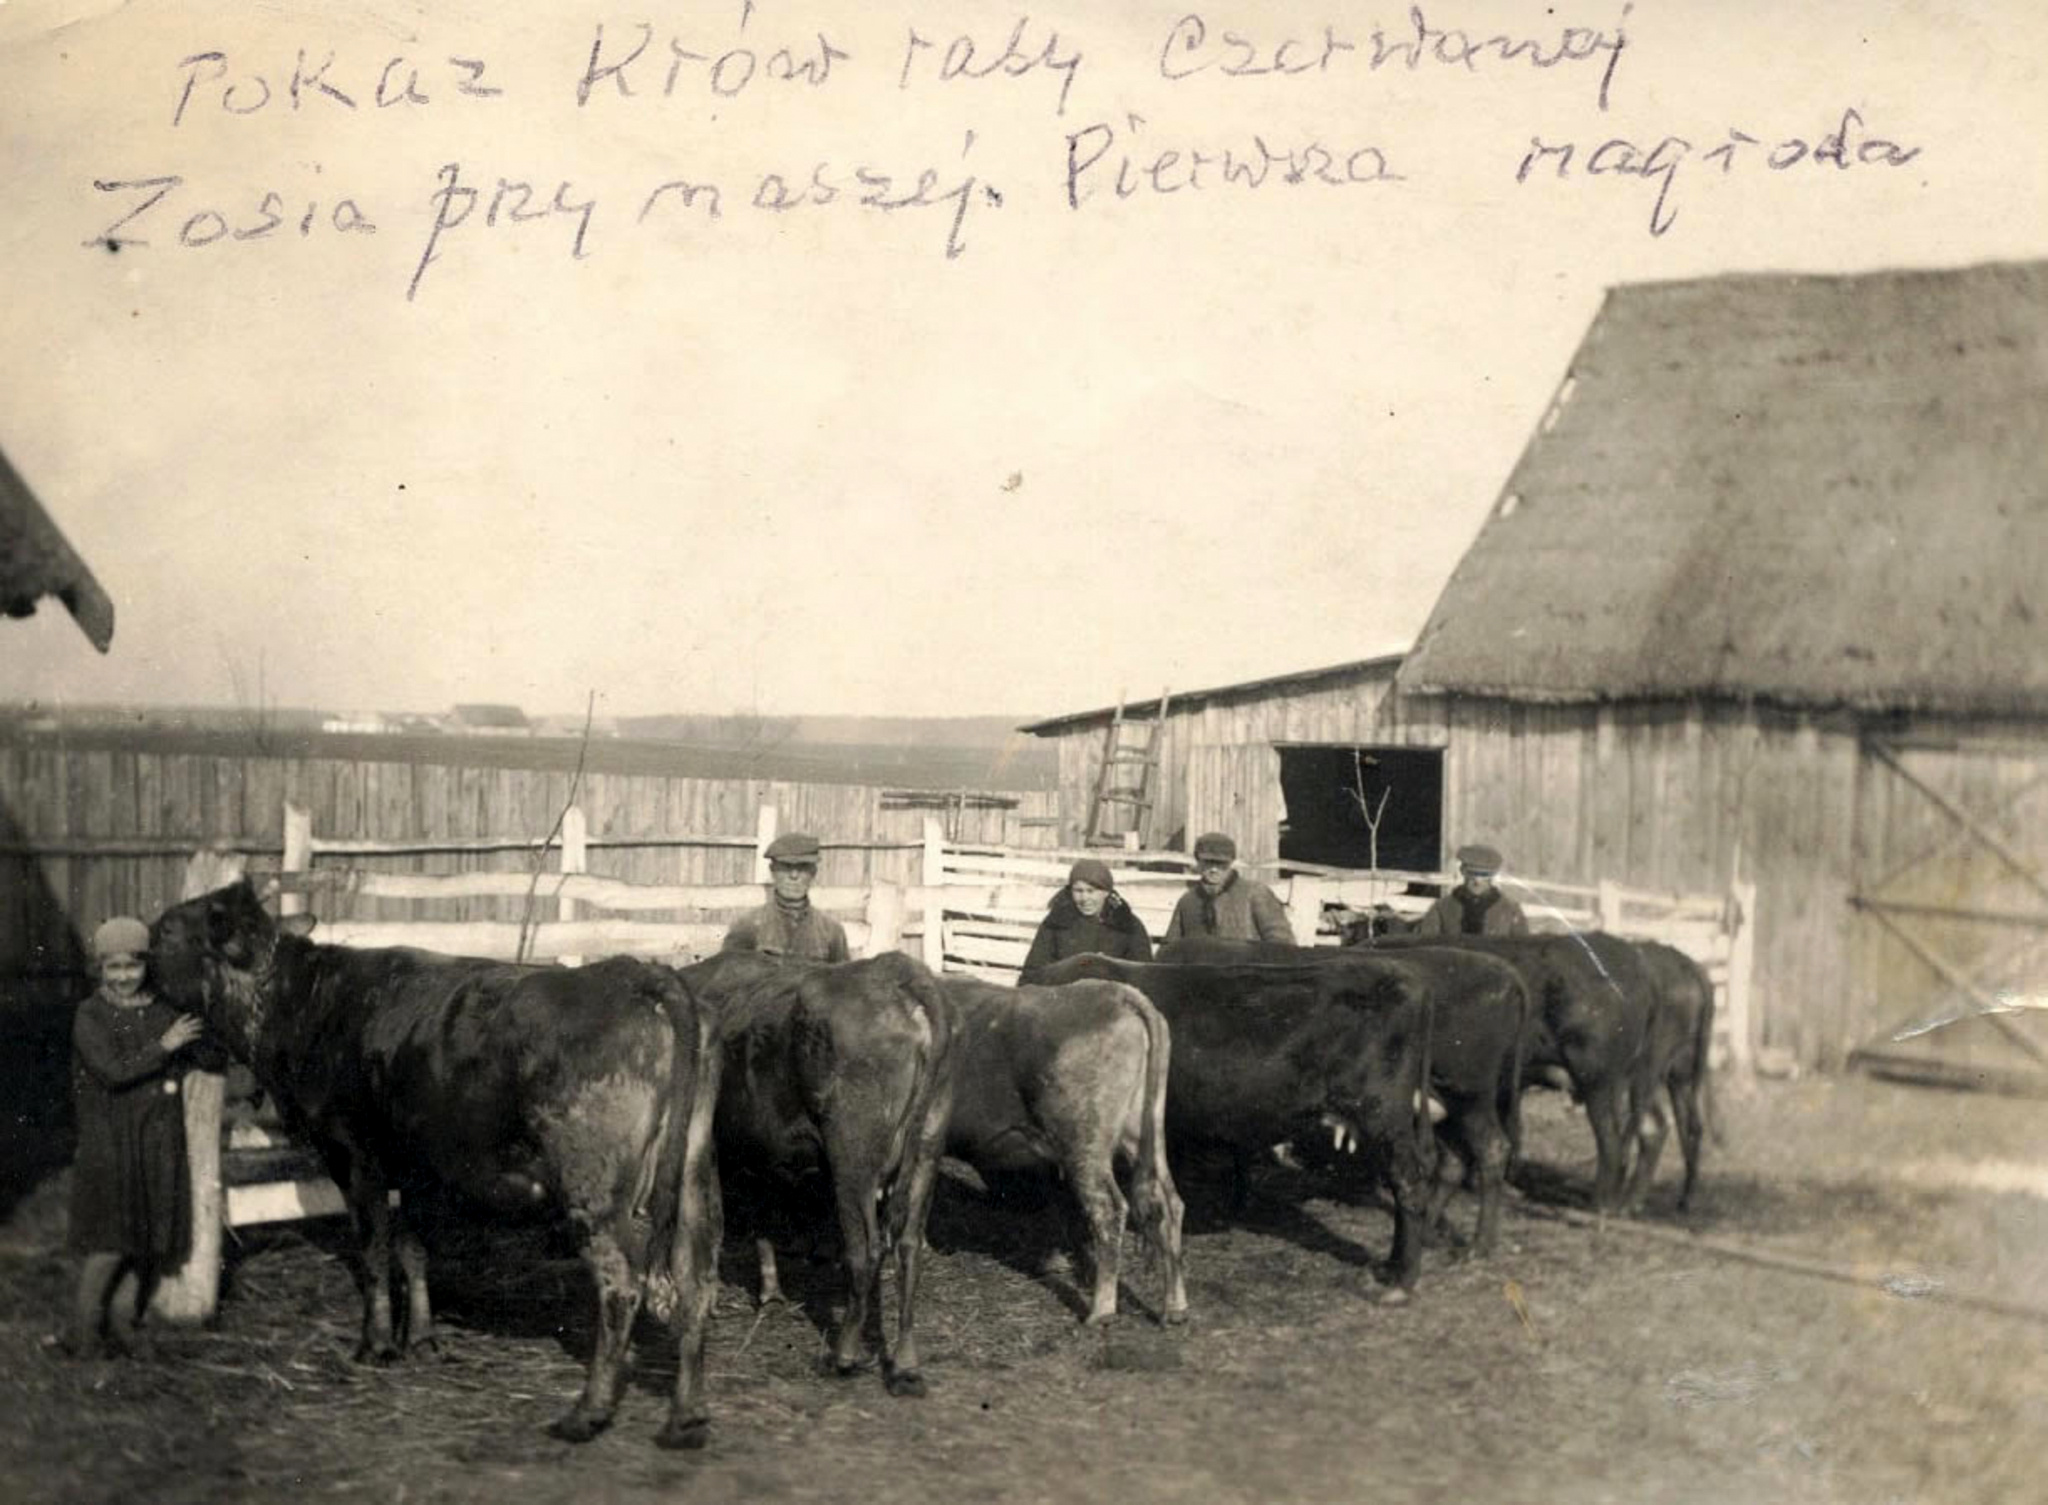 Pokaz Krów rasy Czerwonej
Zosia przy naszej. Pierwsza nagroda